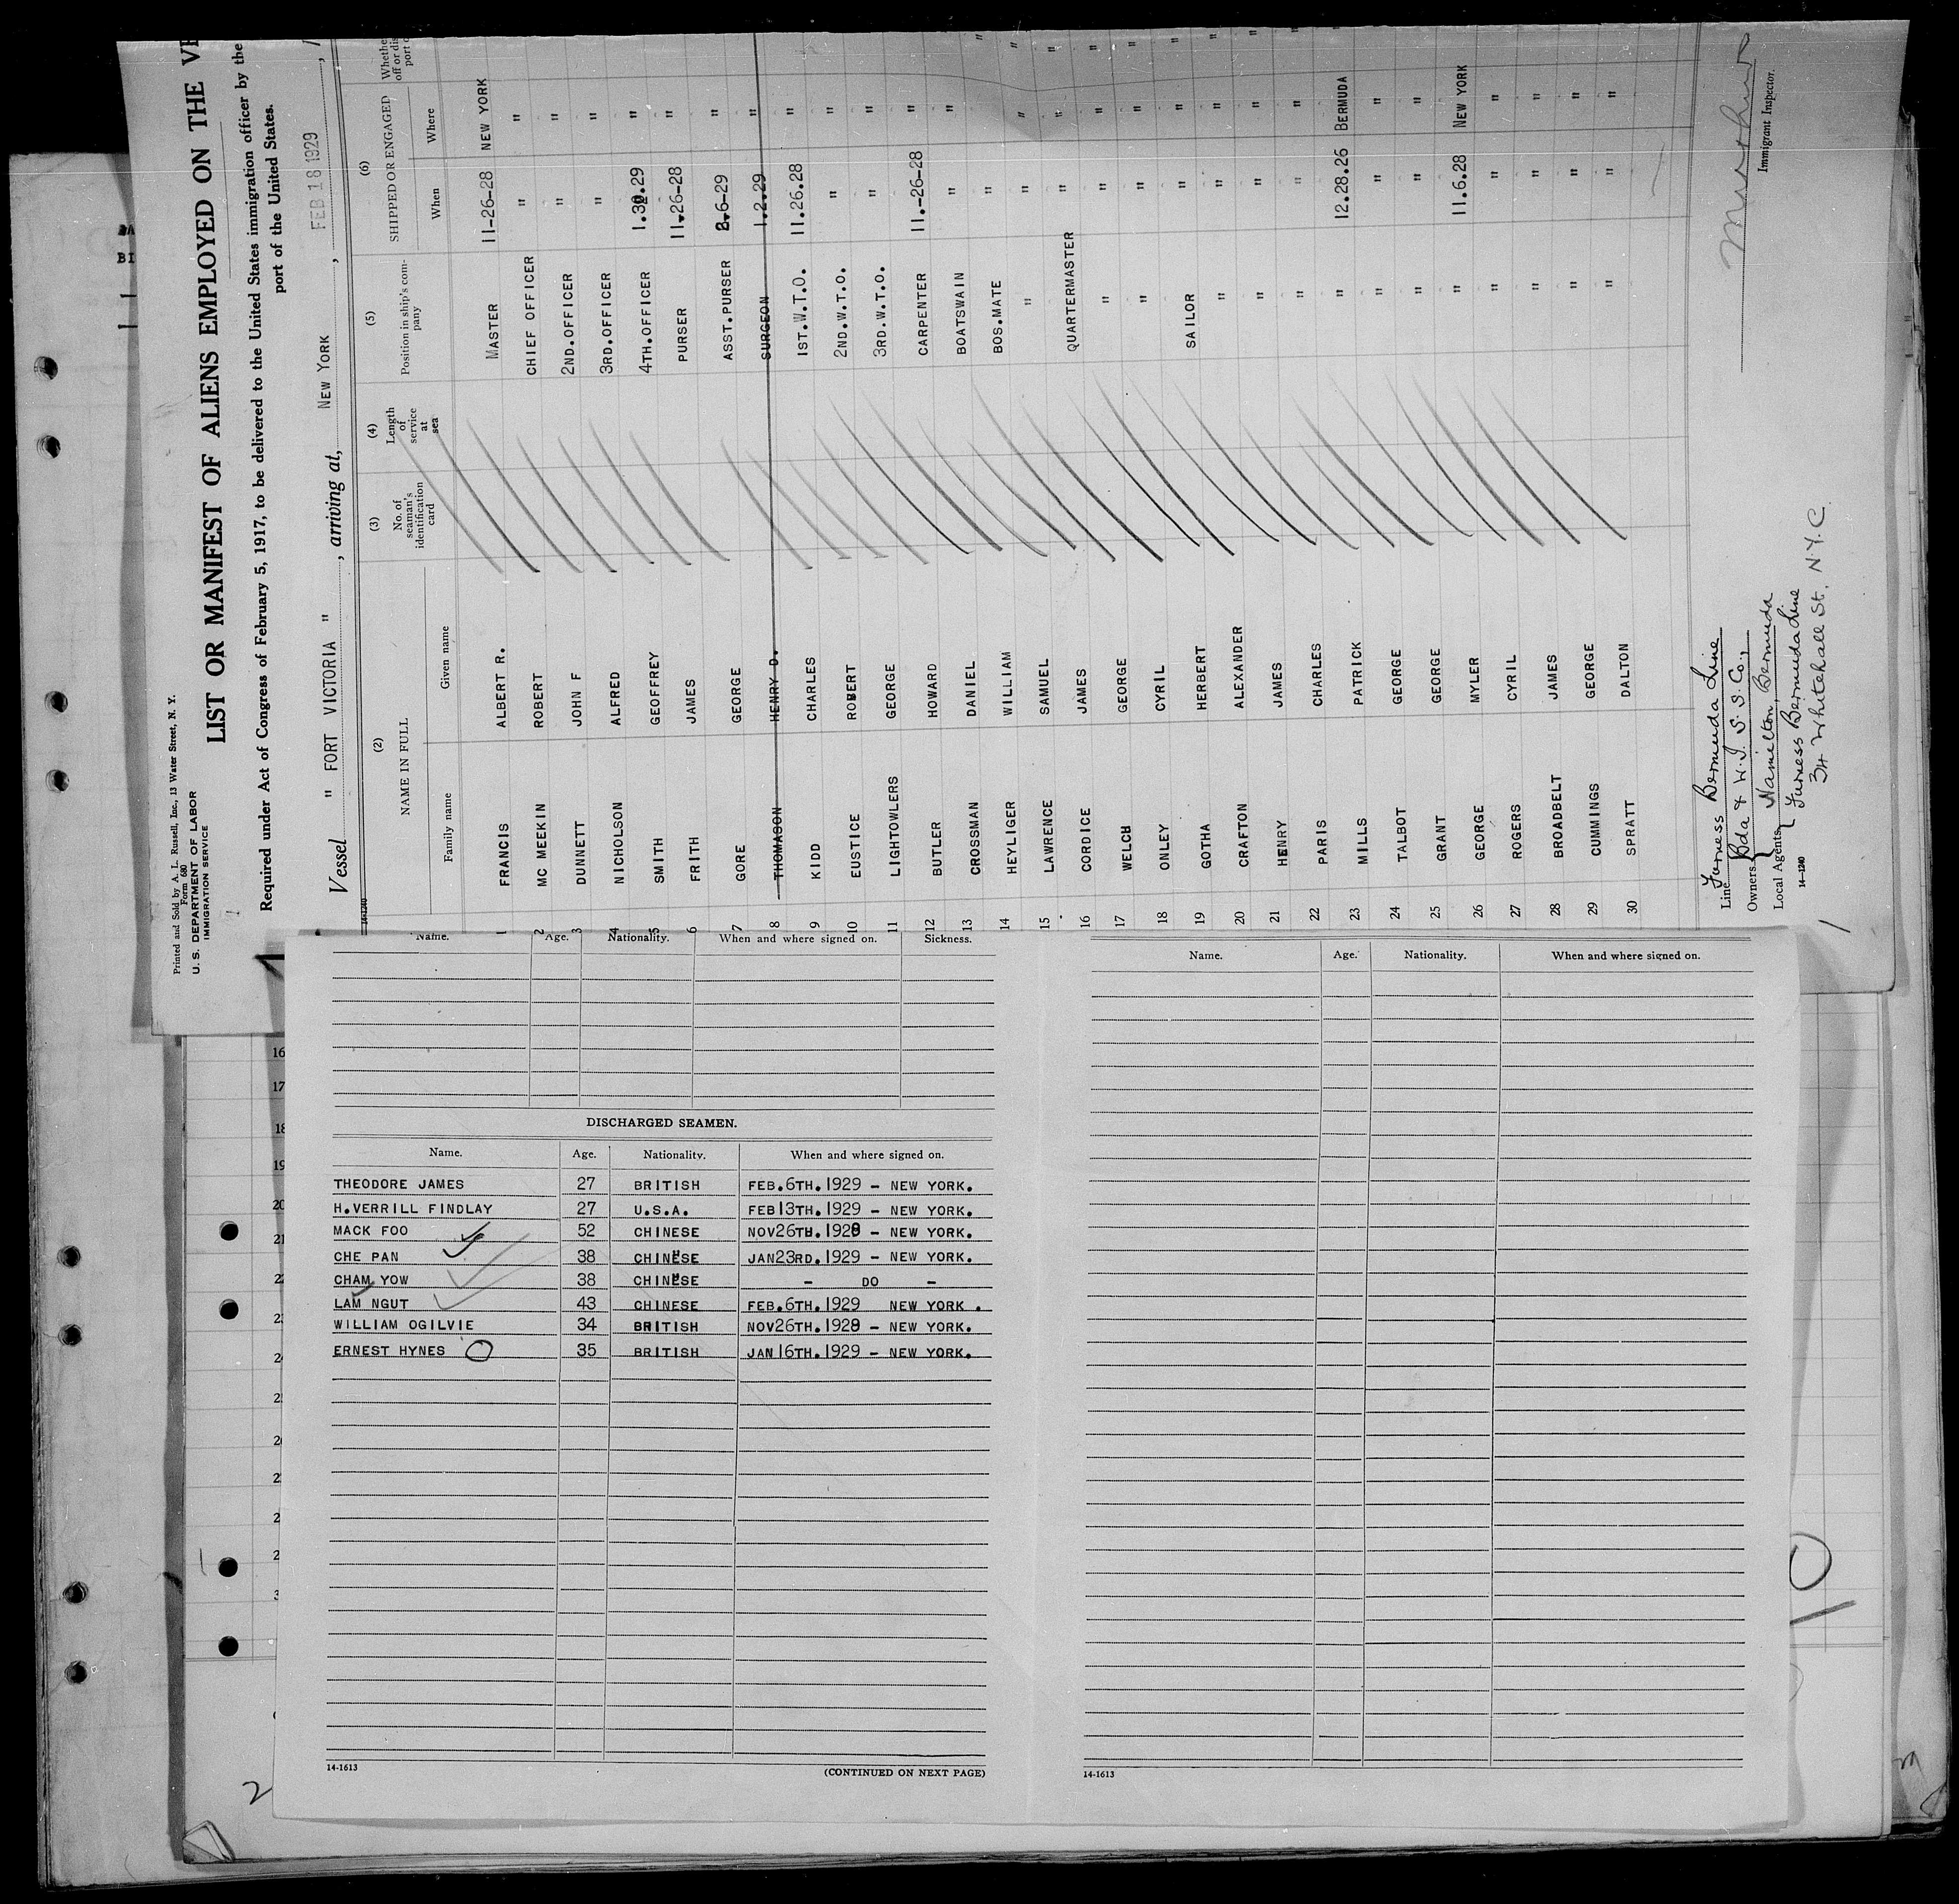 Printed and Sold by A. L. Russell, Inc., 13 Water Street, N. Y.
Form 680
U. S. DEPARTMENT OF LABOR
IMMIGRATION SERVICE
LIST OR MANIFEST OF ALIENS EMPLOYED ON THE
Required under Act of Congress of February 5, 1917, to be delivered to the United States immigration officer by the
port of the United States.
Vessel " FORT VICTORIA " , arriving at, NEW YORK , FEB 18 1929 ,
14-1240
(2) (3) (4) (5) (6)
NAME IN FULL No. of seaman's identification card Length of service at sea Position in ship's company SHIPPED OR ENGAGED
Family name Given name When Where
1 FRANCIS ALBERT R. MASTER 11-26-28 NEW YORK
2 MC MEEKIN ROBERT CHIEF OFFICER " "
3 DUNNETT JOHN F 2ND.OFFICER " "
4 NICHOLSON ALFRED 3RD.OFFICER " "
5 SMITH GEOFFREY 4TH.OFFICER 1.30.29 "
6 FRITH JAMES PURSER 11.26-28 "
7 GORE GEORGE ASST.PURSER 2.6-29 "
8 THOMASON HENRY D. SURGEON 1.2.29 "
9 KIDD CHARLES 1ST.W.T.O. 11.26.28 "
10 EUSTICE ROBERT 2ND.W.T.O. " "
11 LIGHTOWLERS GEORGE 3RD.W.T.O. " "
12 BUTLER HOWARD CARPENTER 11.-26-28 "
13 CROSSMAN DANIEL BOATSWAIN " "
14 HEYLIGER WILLIAM BOS.MATE " " "
15 LAWRENCE SAMUEL " " " "
16 CORDICE JAMES QUARTERMASTER " " "
17 WELCH GEORGE " " " "
18 ONLEY CYRIL " " " "
19 GOTHA HERBERT SAILOR " " "
20 CRAFTON ALEXANDER " " " "
21 HENRY JAMES " " " "
22 PARIS CHARLES " " " "
23 MILLS PATRICK " 12.28.26 BERMUDA "
24 TALBOT GEORGE " " " "
25 GRANT GEORGE " " " "
26 GEORGE MYLER " 11.6.28 NEW YORK "
27 ROGERS CYRIL " " "
28 BROADBELT JAMES " " "
29 CUMMINGS GEORGE " " "
30 SPRATT DALTON " " "
Line Furness Bermuda Line
Owners Bda & W.I. S.S. Co.,
Hamilton, Bermuda
Local Agents Furness Bermuda Line
34 Whitehall St. N.Y.C.
14-1240
Immigrant Inspector.
Name. Age. Nationality. When and where signed on. Sickness.
DISCHARGED SEAMEN.
Name. Age. Nationality. When and where signed on.
THEODORE JAMES 27 BRITISH FEB.6TH.1929 - NEW YORK.
H.VERRILL FINDLAY 27 U.S.A. FEB13TH.1929 - NEW YORK.
MACK FOO 52 CHINESE NOV26TH.1928 - NEW YORK.
CHE PAN 38 CHINESE JAN23RD.1929 - NEW YORK.
CHAM YOW 38 CHINESE - DO -
LAM NGUT 43 CHINESE FEB.6TH.1929 NEW YORK .
WILLIAM OGILVIE 34 BRITISH NOV26TH.1928 - NEW YORK.
ERNEST HYNES 35 BRITISH JAN16TH.1929 - NEW YORK.
14-1613
(CONTINUED ON NEXT PAGE)
Name. Age. Nationality. When and where signed on.
14-1613
16
17
18
19
20
21
2
10